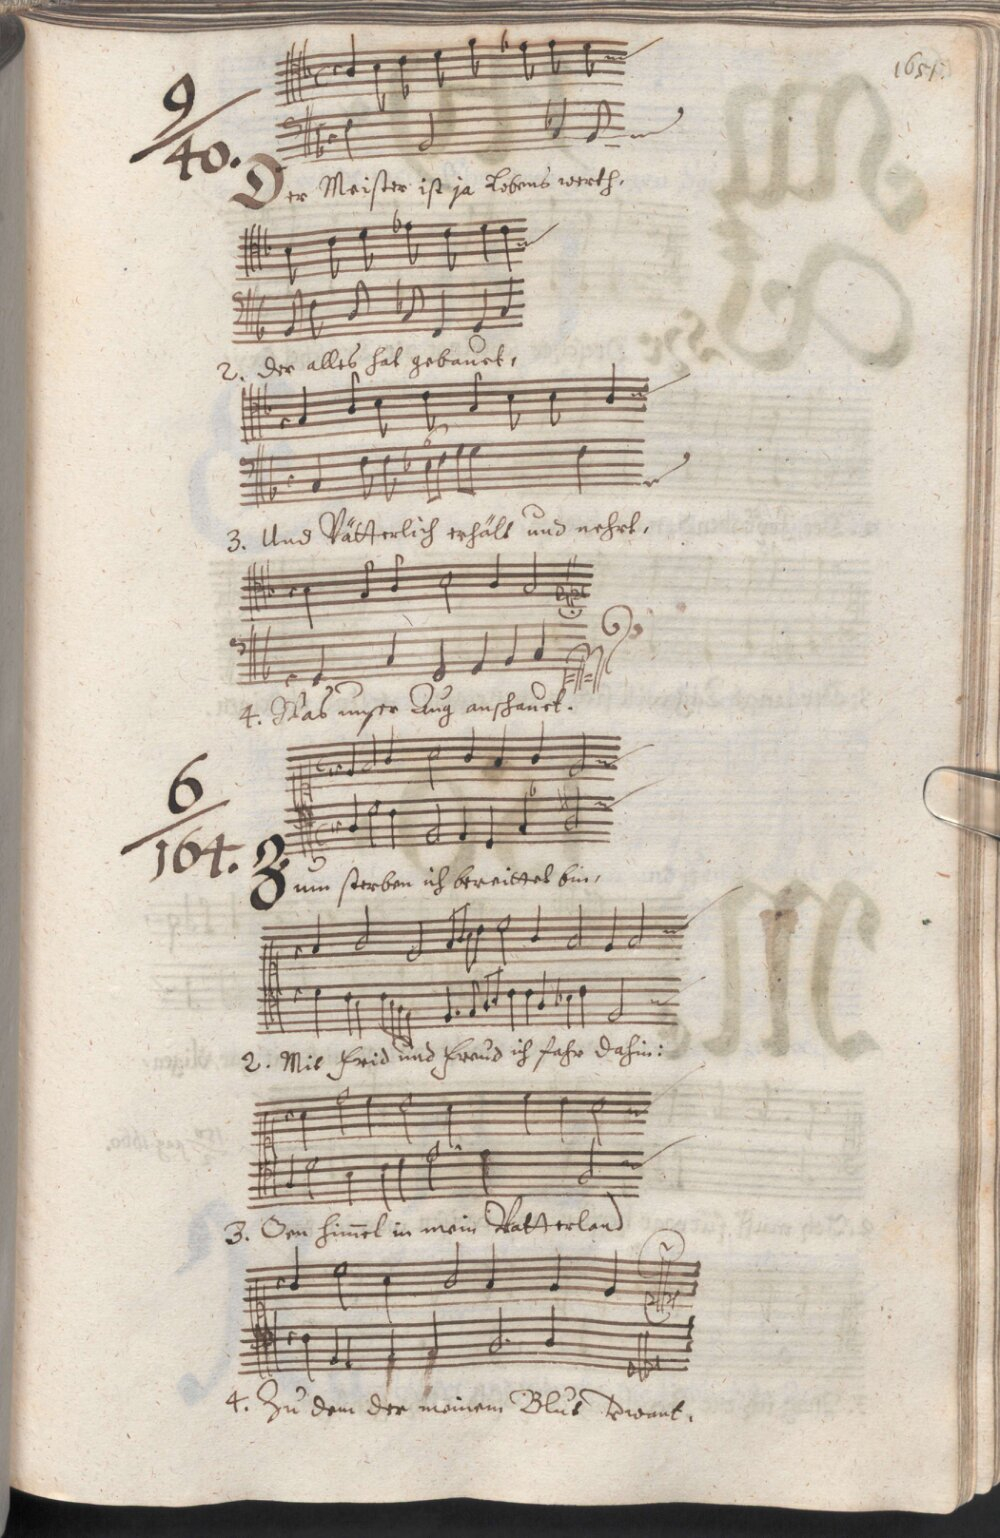 1651.
9/40.
Der Meister ist ja Lobens werth,
2. der alles hat gebauet,
3. Und Vätterlich erhält und nehrt,
4. Was unser Aug anschauet.
6/164.
Zum sterben ich bereittet bin,
2. Mit Frid und Freud ich fahr dahin:
3. Gen himel in mein Vatterland
4. Zu dem der meinem Blut